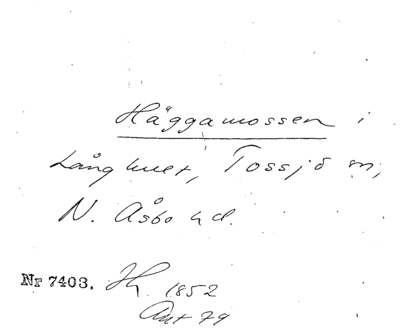 Häggamossen i
Långhult, Tossjö sn,
N. Åsbo hd.
Nr 7403. Hj. 1852
Ant 79